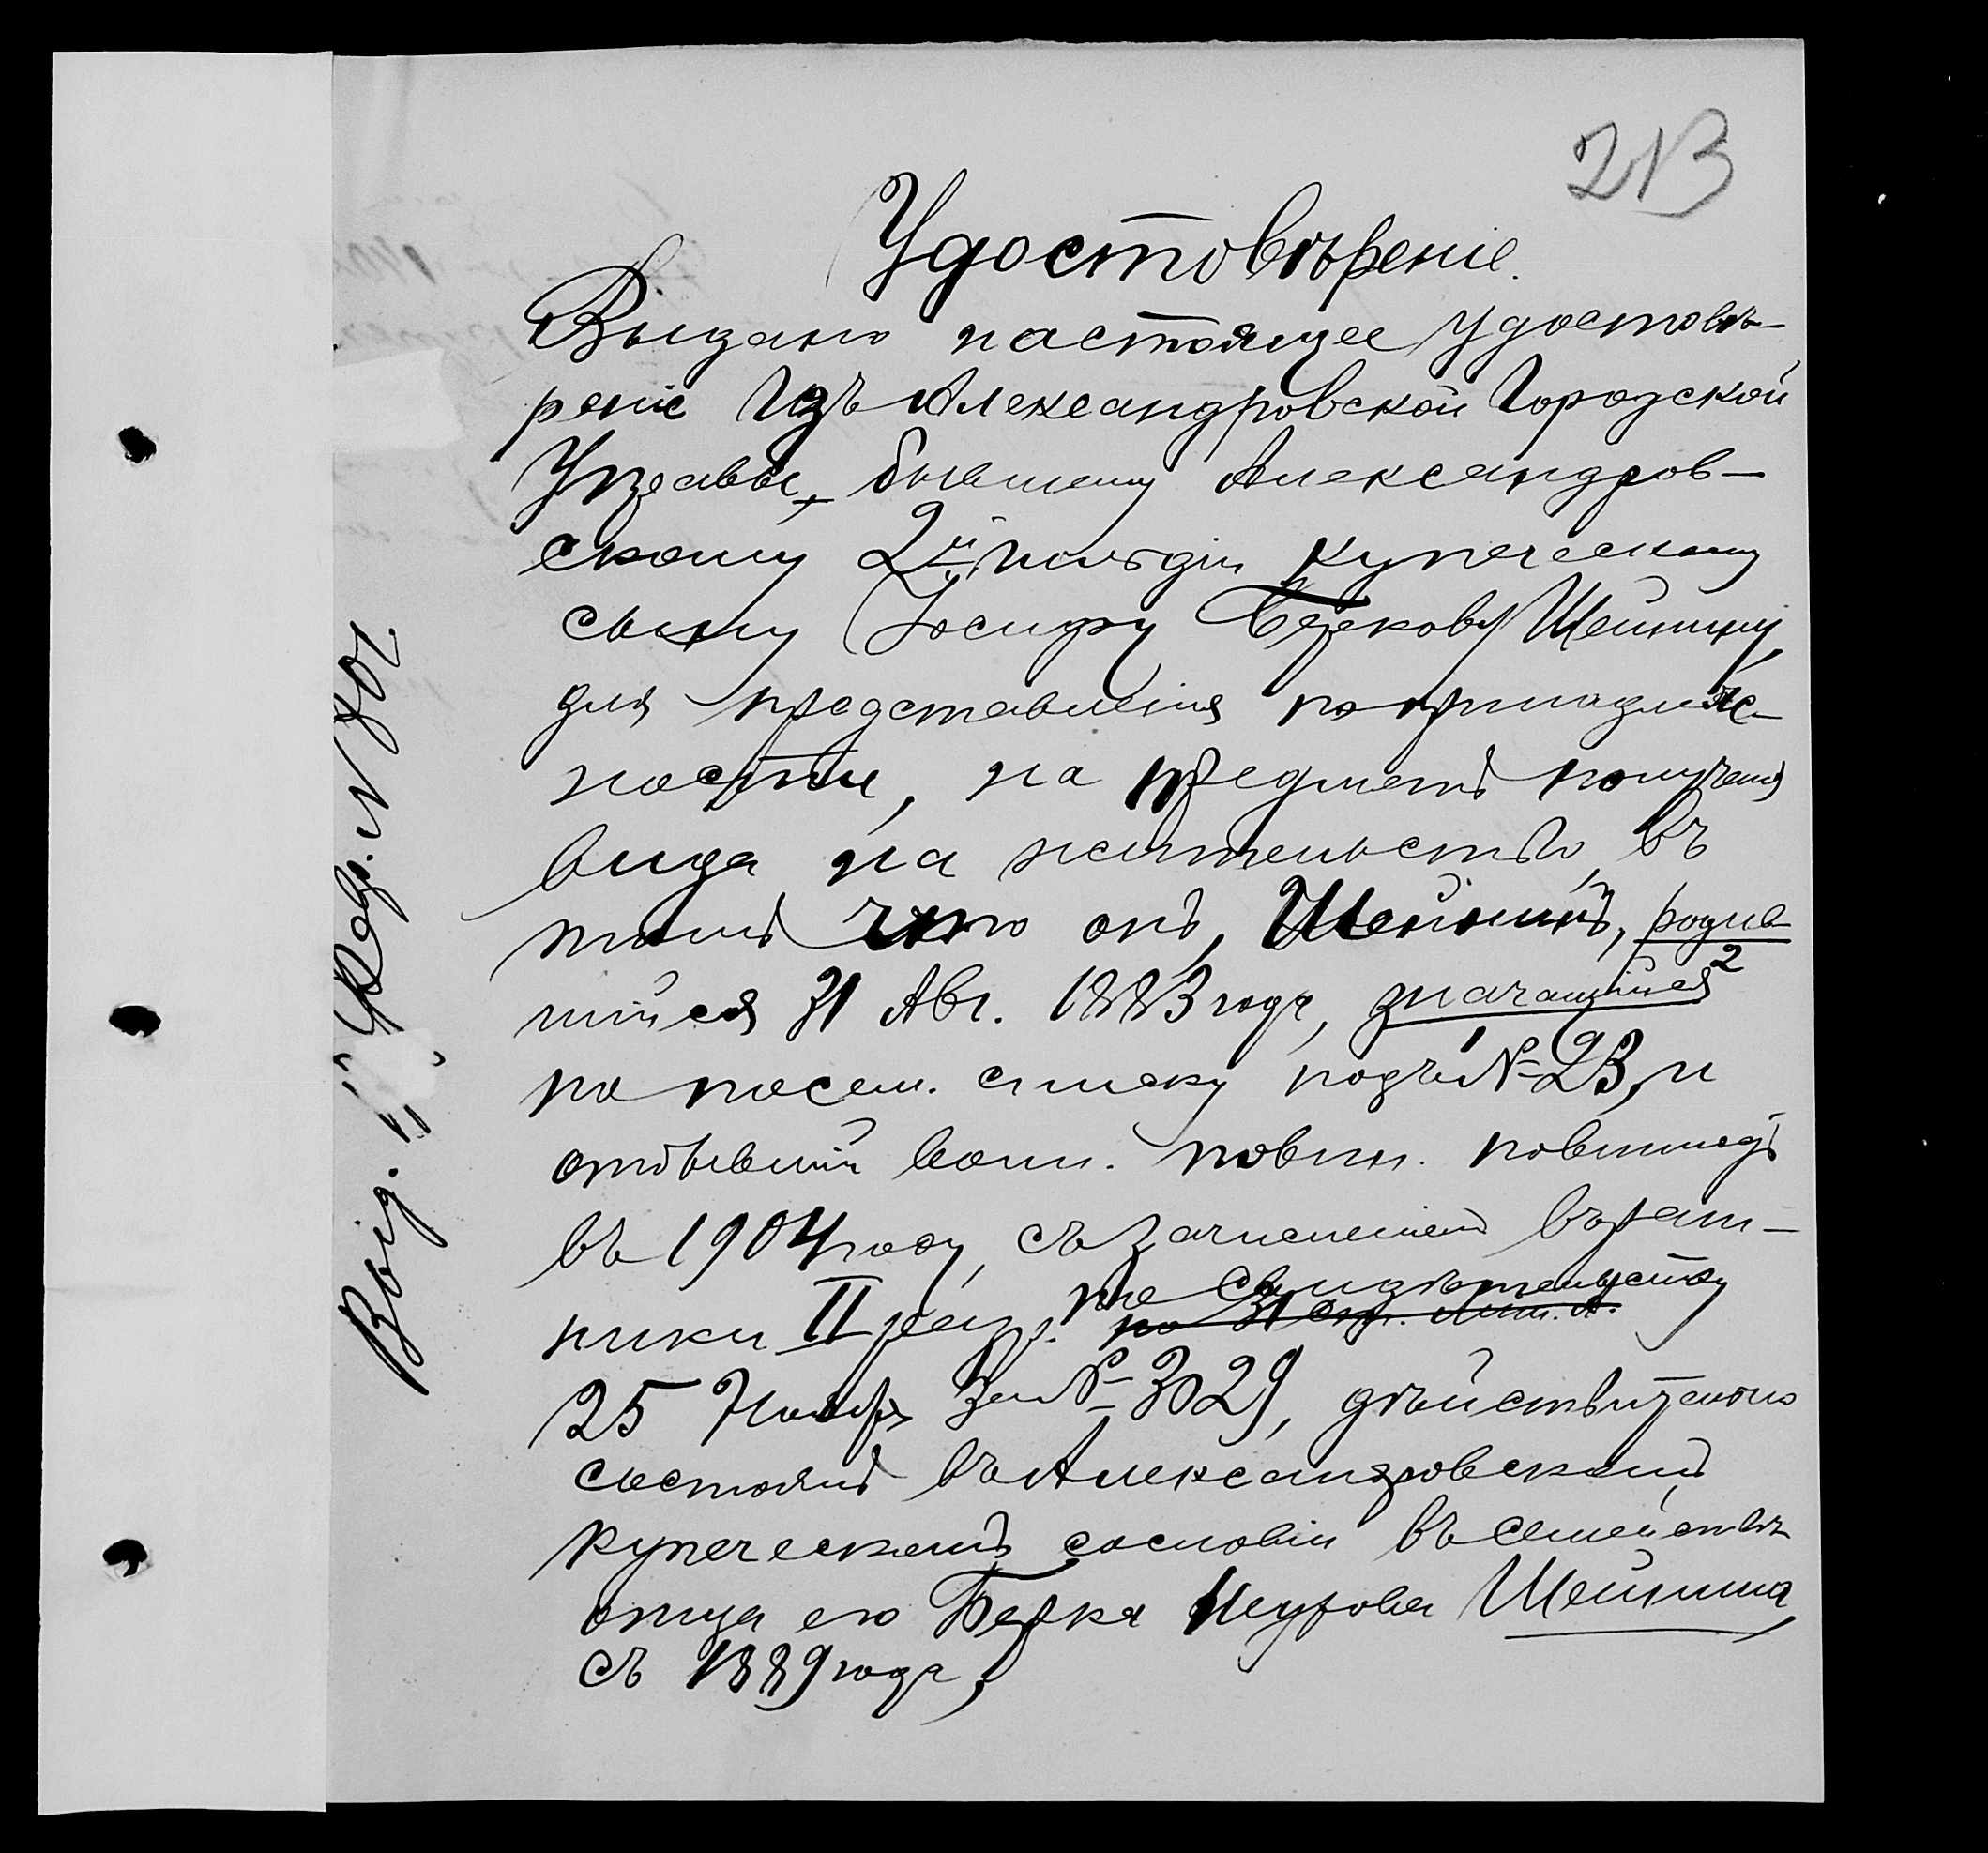 213
Удостовѣреніе.
Выдано настоящее удостовѣ-
реніе изъ Александровской Городской
Управы, бывшему Александров-
скому 2й гильдіи купеческому
сыну Іосифу Беркову Шейнину,
для представленія по принадлеж-
ности, на предметъ полученія
вида на жительство, въ
томъ что онъ, Шейнинъ, родив-
шійся 31 Авг. 1883 года, значащійся 2
по посем. списку подъ № 23, и
отбывшій воин. повин.
въ 1904 году, съ зачисленіемъ въ рат-
ники II разр. по свидѣтельству
по 31 Лит. А.
25 Ноября за № 3029, дѣйствительно
состоялъ въ Александровскомъ
купеческомъ сословіи въ семействѣ
отца его Берка Шейнина
съ 1889 года,
Выд. № 801